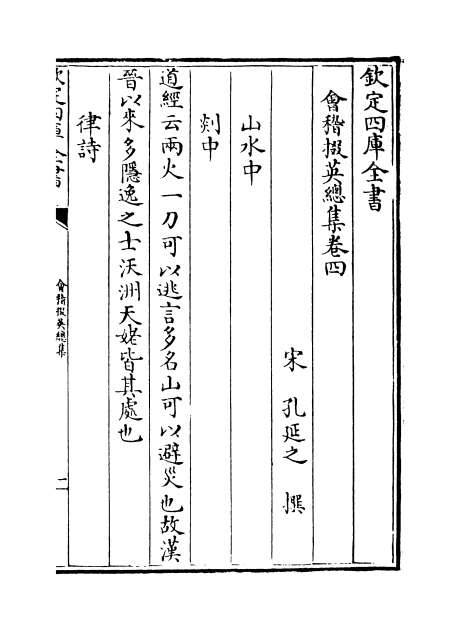 欽定四庫全書
會稽掇英總集卷四
宋 孔延之 撰
山水中
剡中
道經云兩火一刀可以逃言多名山可以避災也故漢
晉以來多隱逸之士沃洲天姥皆其處也
律詩
欽定四庫全書
會稽掇英總集
二